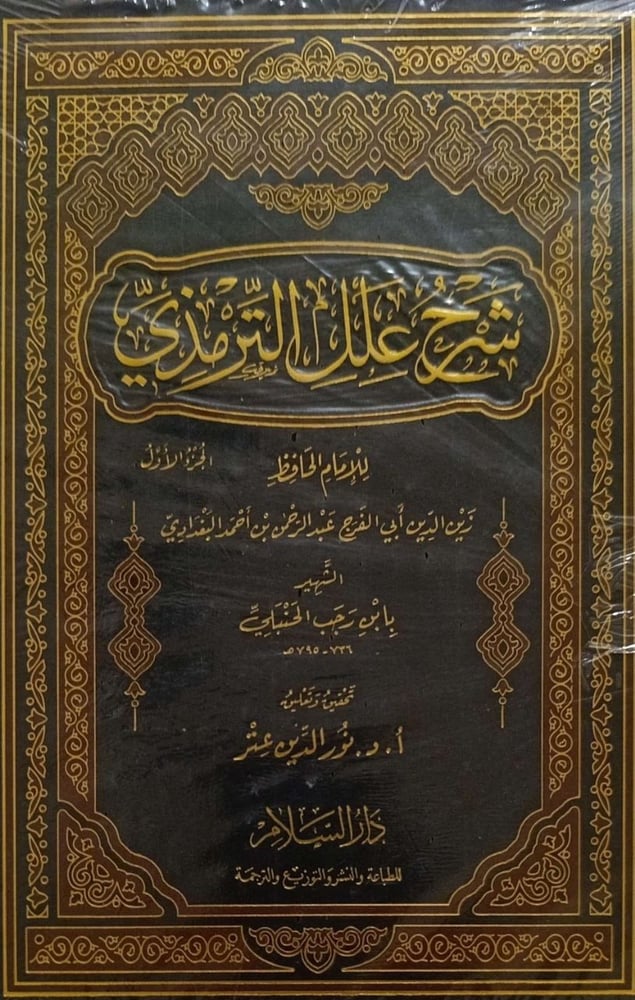 شَرْحُ عِلَلِ التِّرْمِذِيِّ
لِلْإِمَامِ الْحَافِظِ
الجُزْءُ الأَوَّلُ
زَيْنِ الدِّينِ أَبِي الفَرَجِ عَبْدِ الرَّحْمٰنِ بْنِ أَحْمَدَ البَغْدَادِيِّ
الشَّهِيرِ
بِابْنِ رَجَبٍ الحَنْبَلِيِّ
٧٣٦ - ٧٩٥ هـ
تَحْقِيقُ وَتَعْلِيقُ
أ. د. نُورُ الدِّينِ عِتْر
دَارُ السَّلَامِ
للطباعة والنشر والتوزيع والترجمة